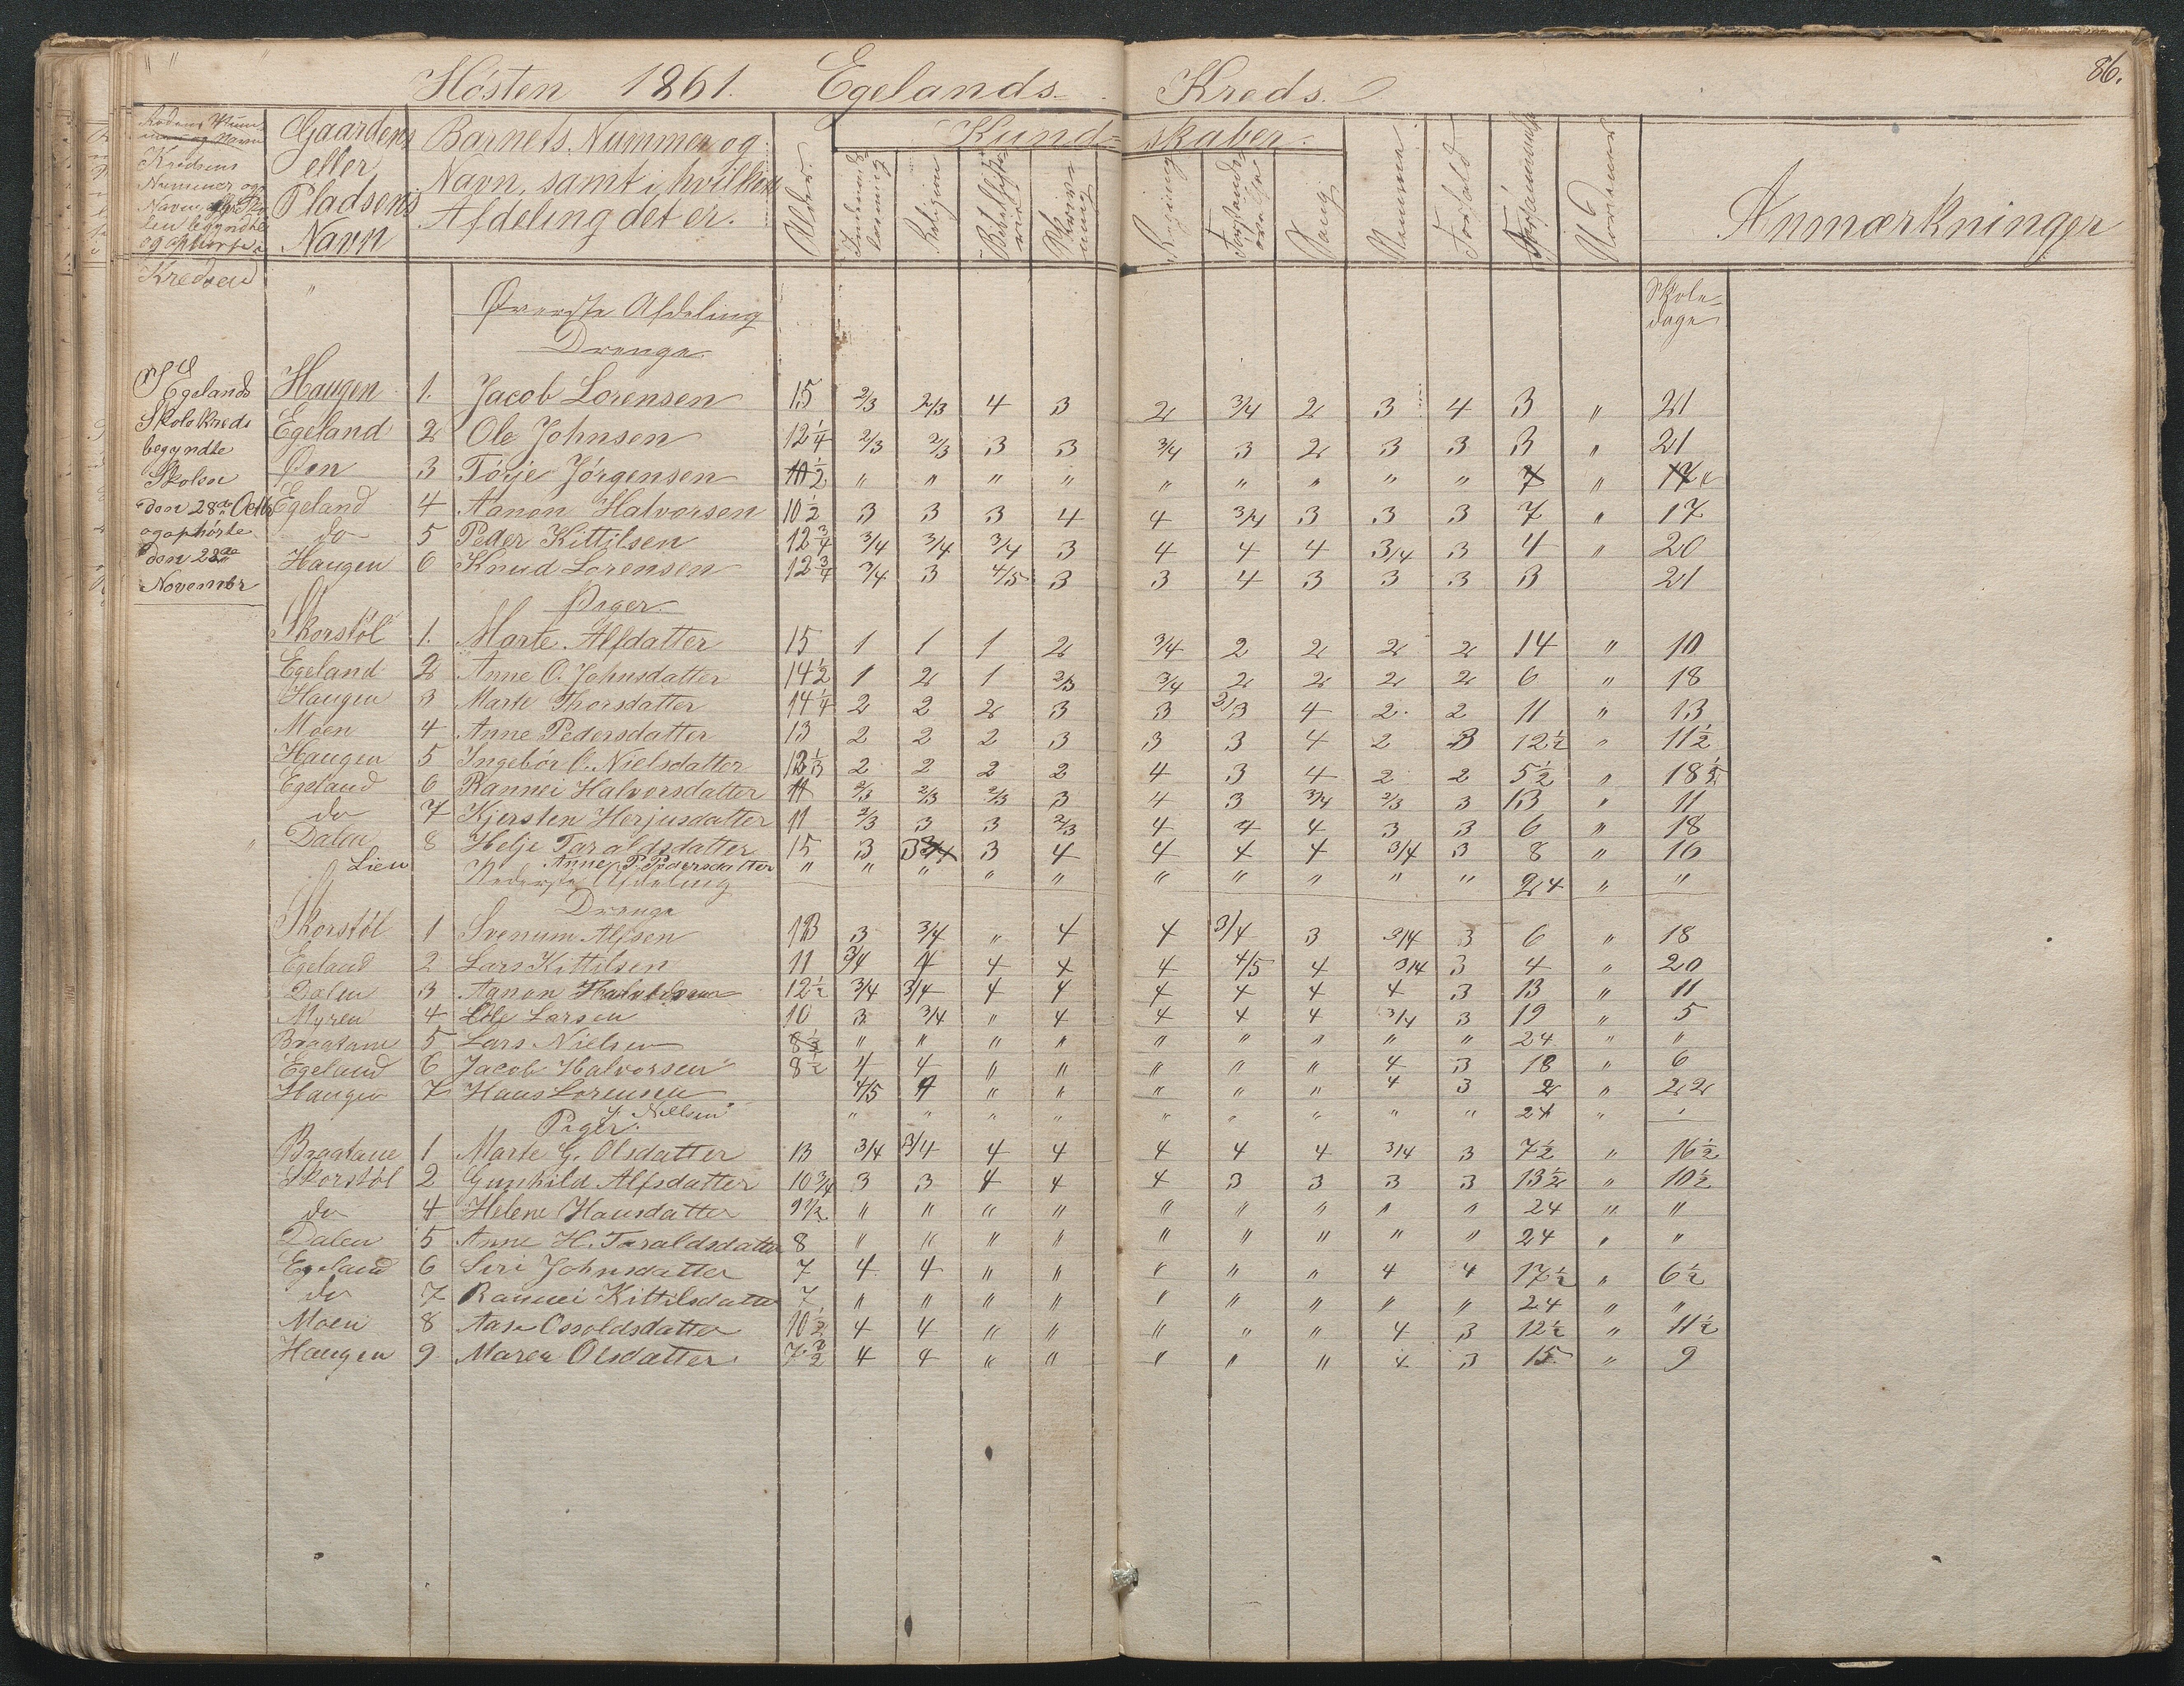 86.
Hösten 1861. Egelands Kreds.
Kredsens
Nummer og
Navn
begyndte
Kredsen
Gaardens eller Pladsens Navn
Barnets Nummer og Navn, samt i hvilken Afdeling det er.
Alder
Kundskaber.
Religion
Regning
Sang
Nemme
Forhold
Anmærkninger
Skoledage
Øverste Afdeling
Drenge
Egelands
Skolekreds
begyndte
Skolen
den 28de Octbr
og ophørte
den 22de
November
Haugen 1. Jacob Lorensen 15 2/3 2/3 4 3 2 3/4 2 3 4 3 " 21
Egeland 2 Ole Johnsen 12 1/4 2/3 2/3 3 3 3/4 3 2 3 3 3 " 21
Øen 3 Törje Jörgensen " " " " " " " " " "
Egeland 4 Aanon Halvorsen 10 1/2 3 3 3 4 4 3/4 3 3 3 7 " 17
do 5 Peder Kittilsen 12 3/4 3/4 3/4 3/4 3 4 4 4 3/4 3 4 " 20
Haugen 6 Knud Lorensen 12 3/4 3/4 3 4/5 3 3 4 3 3 3 3 21
Piger.
Skorstöl 1. Marte Alfdatter 15 1 1 1 2 3/4 2 2 2 2 14 " 10
Egeland 2 Anne O. Johnsdatter 14 1/2 1 2 1 2/3 3/4 2 2 2 2 6 " 18
Haugen 3 Marte Thorsdatter 14 1/4 2 2 2 3 3 2/3 4 2 2 11 " 13
Moen 4 Anne Pedersdatter 13 2 2 2 3 3 3 4 2 3 12 1/2 " 11 1/2
Haugen 5 Ingebör C. Nielsdatter 2 2 2 2 4 3 4 2 2 5 1/2 " 18 1/2
Egeland 6 Rannei Halvorsdatter 11 2/3 2/3 2/3 3 4 3 3/4 2/3 3 13 " 11
do 7 Kjersten Herjusdatter 11 2/3 3 3 2/3 4 4 4 3 3 6 " 18
Dalen 8 Helje Taraldsdatter 15 3 3 4 4 4 4 3/4 3 8 " 16
Lien Anne P. Pedersdatter " " " " " " " " " " 24 " "
Nederste Afdeling
Drenge
Skorstöl 1 Svenum Alfsen 13 3 3/4 " 4 4 3/4 3 3/4 3 6 " 18
Egeland 2 Lars Kittilsen 11 3/4 4 4 4 4 4/5 4 3/4 3 4 " 20
Dalen 3 Aanon 12 1/2 3/4 3/4 4 4 4 4 4 4 3 13 " 11
Myren 4 Ole Larsen 10 3 3/4 " 4 4 4 4 3/4 3 19 " 5
Braatane 5 Lars Nielsen 8 1/2 " " " " " " " " " 24 " "
Egeland 6 Jacob Halvorsen 8 1/2 4 4 " " " " " 4 3 18 " 6
Haugen 7 Hans Lorensen 4/5 4 " " " " " 4 3 2 " 22
Nilsen " " " " " " " " " 24 " "
Piger.
Braatane 1 Marte G. Olsdatter 13 3/4 3/4 4 4 4 4 4 3/4 3 7 1/2 " 16 1/2
Skorstöl 2 Gunhild Alfsdatter 10 3/4 3 3 4 4 4 3 3 3 3 13 1/2 " 10 1/2
do 4 Helene Hansdatter 9 1/2 " " " " " " " " " 24 " "
Dalen 5 Anne H. Taraldsdatter 8 " " " " " " " " " 24 " "
Egeland 6 Siri Johnsdatter 7 4 4 " " " " " 4 4 17 1/2 " 6 1/2
do 7 Rannei Kittilsdatter 7 " " " " " " " " " 24 " "
Moen 8 Aase Ossoldsdatter 10 1/2 4 4 " " " " " 4 3 12 1/2 " 11 1/2
Haugen 9 Maren Olsdatter 7 1/2 4 4 " " " " " 4 3 15 " 9